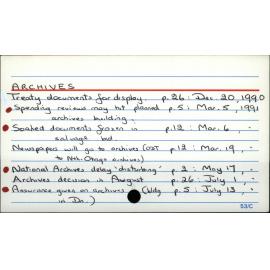 ARCHIVES
Treaty documents for display. p.26 : Dec. 20, 1990
Spending reviews may hit planned p.5 : Mar. 5, 1991
archives building.
Soaked documents frozen in p.12 : Mar. 6, -
salvage bid
Newspapers will go to archives (ODT p.12 : Mar. 19, -
to Nth. Otago archives)
National Archives delay "disturbing" p.3 : May 17, -
Archives decision in August p.26 : July 1, -
Assurance given on archives (bldg p.5 : July 13, -
in Dn.)
53/C